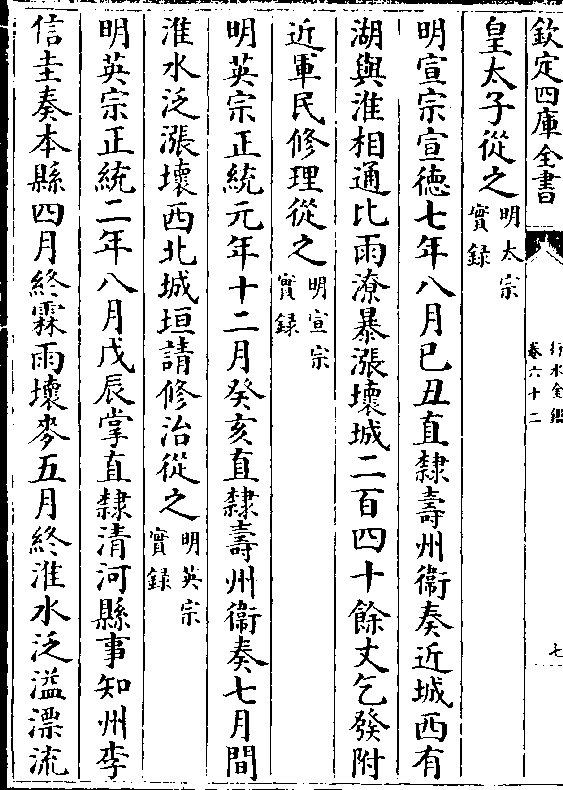 欽定四庫全書
行水金鑑
卷六十二
七
皇太子從之明太宗實録
明宣宗宣德七年八月己丑直隸壽州衞奏近城西有
湖與淮相通比雨潦暴漲壞城二百四十餘丈乞發附
近軍民修理從之明宣宗實録
明英宗正統元年十二月癸亥直隸壽州衞奏七月間
淮水泛漲壞西北城垣請修治從之明英宗實録
明英宗正統二年八月戊辰掌直隸清河縣事知州李
信圭奏本縣四月終霖雨壞麥五月終淮水泛溢漂流